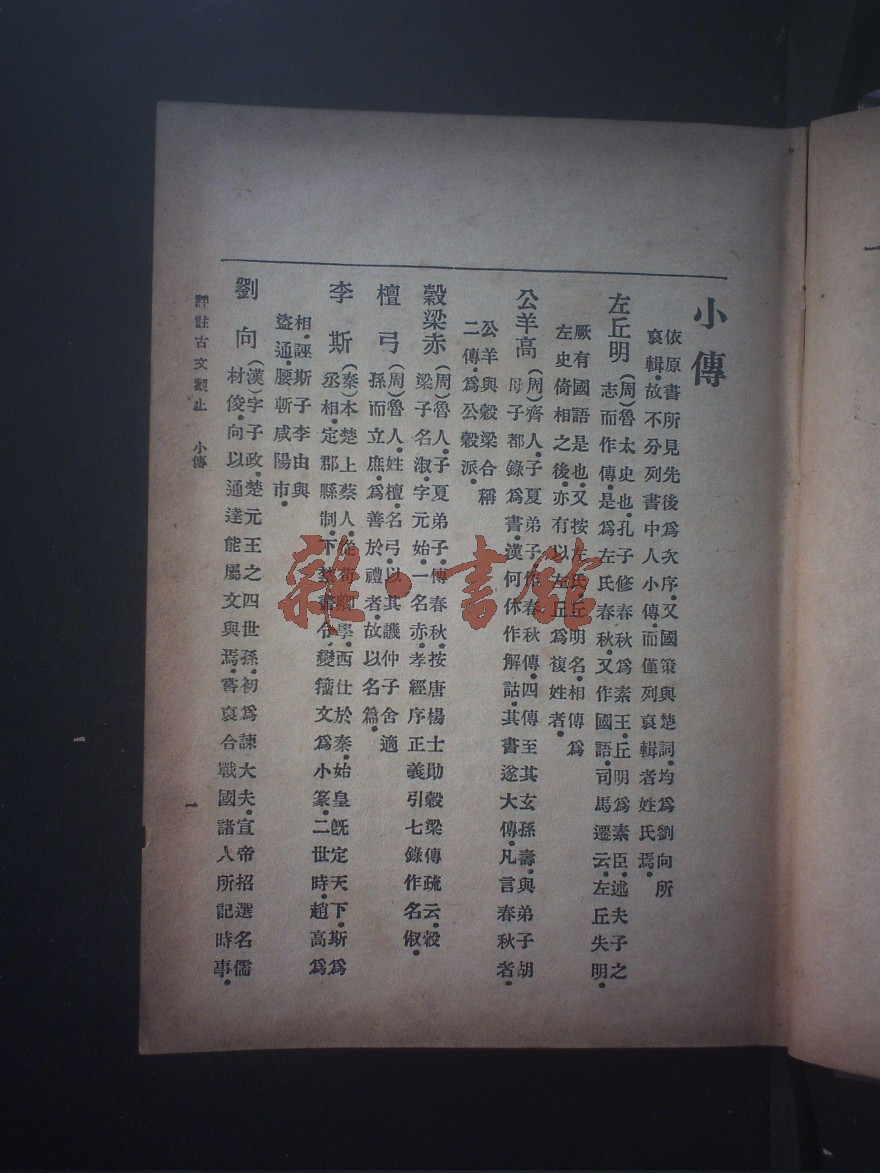 小傳
依原書所見先後爲次序又國策與楚詞均爲劉向所
裒輯故不分列書中人小傳而僅列裒輯者姓氏焉
左丘明
(周)魯太史也孔子修春秋爲素王丘明爲素臣述夫子之
志而作傳是爲左氏春秋又作國語司馬遷云左丘失明
厥有國語是也又按左氏丘明名相傳爲
左史倚相之後亦有以左丘爲複姓者
公羊高
(周)齊人子夏弟子作春秋傳四傳至其玄孫壽與弟子胡
母子都錄爲書漢何休作解詁其書遂大傳凡言春秋者
公羊與穀梁合稱
二傳爲公穀派
穀梁赤
(周)魯人子夏弟子傳春秋按唐楊士勛穀梁傳疏云穀
梁子名淑字元始一名赤孝經序正義引七錄作名俶
檀弓
(周)魯人姓檀名弓以其譏仲子舍適
孫而立庶爲善於禮者故以名篇
李斯
(秦)本楚上蔡人從荀卿學西仕於秦始皇既定天下斯爲
丞相定郡縣制下禁書令變籀文爲小篆二世時趙高爲
相誣斯子李由與
盜通腰斬咸陽市
劉向
(漢)字子政楚元王之四世孫初爲諫大夫宣帝招選名儒
材俊向以通達能屬文與焉嘗裒合戰國諸人所記時事
評註古文觀止 小傳
一
雜·書館